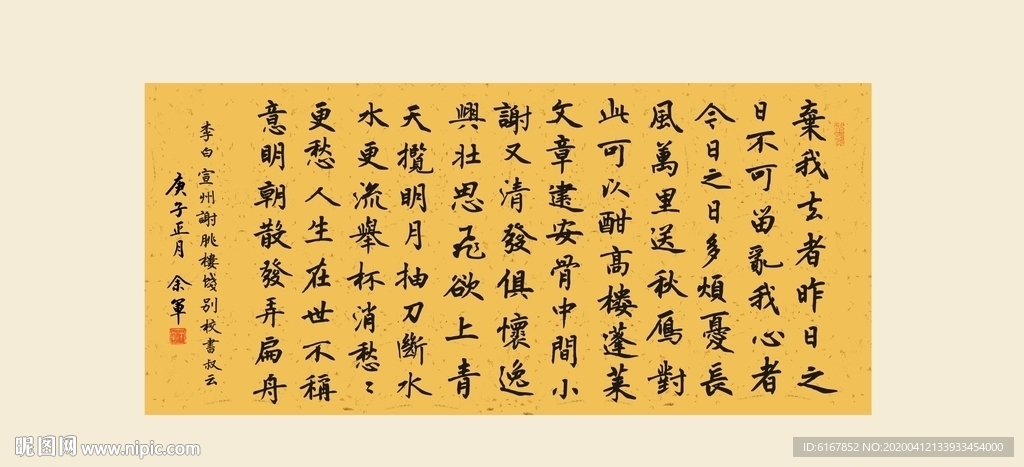 棄我去者昨日之
日不可留亂我心者
今日之日多煩憂長
風萬里送秋鴈對
此可以酣高樓蓬萊
文章建安骨中間小
謝又清發俱懷逸
興壯思飛欲上青
天攬明月抽刀斷水
水更流舉杯消愁〻
更愁人生在世不稱
意明朝散發弄扁舟
李白宣州謝朓樓餞別校書叔云
庚子正月 余軍
昵图网 www.nipic.com
ID:6167852 NO:20200412133933454000